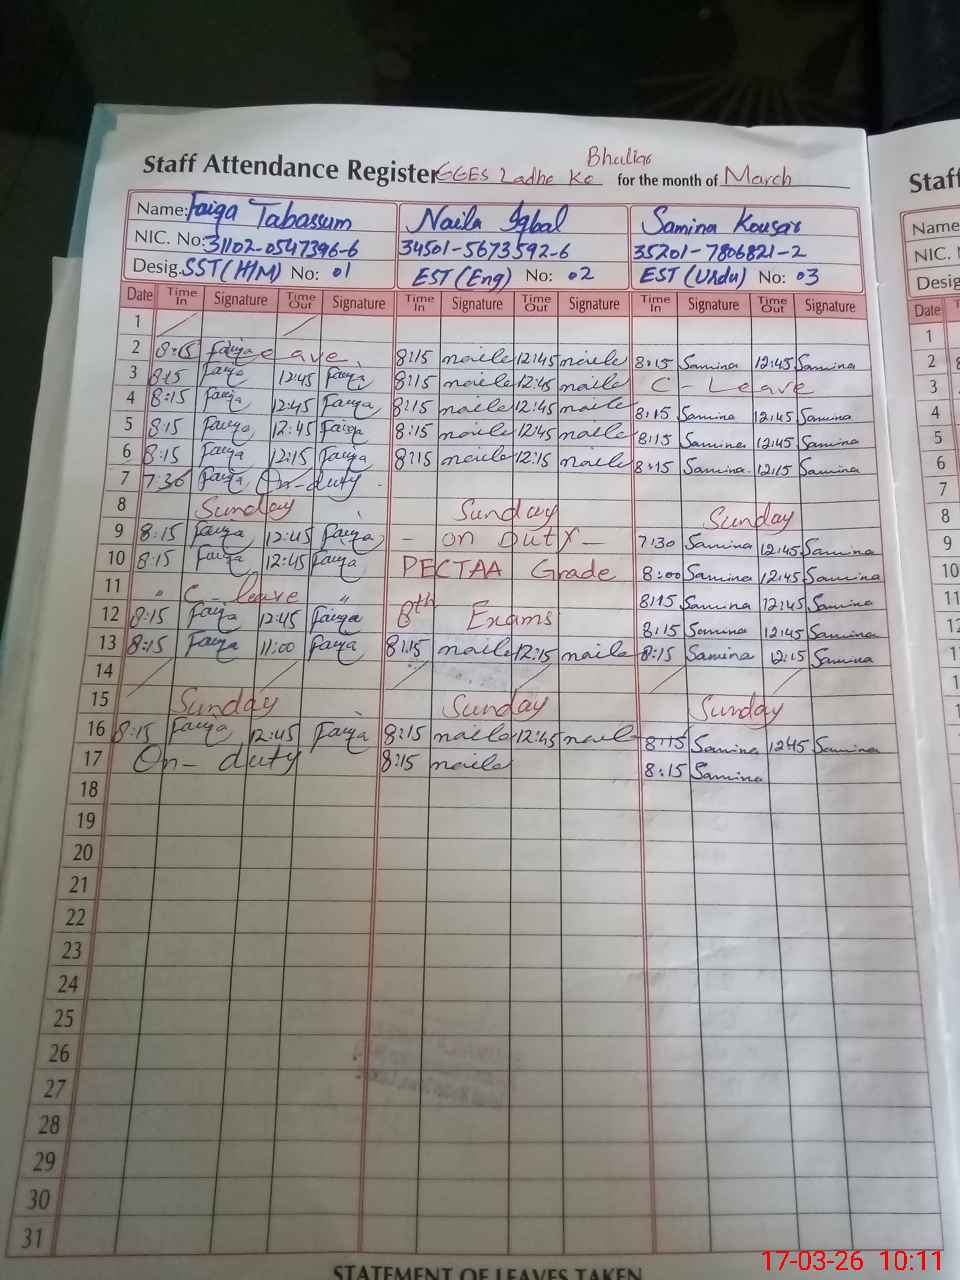 Bhulias
Staff Attendance Register GGES Ladhe Ke for the month of March
Name: Faiqa Tabassum Naila Iqbal Samina Kousar
NIC. No: 31102-0547396-6 34501-5673592-6 35201-7806821-2
Desig. SST(H/M) No: 01 EST (Eng) No: 02 EST (Urdu) No: 03
Date Time In Signature Time Out Signature Time In Signature Time Out Signature Time In Signature Time Out Signature
1
2 8:15 Faiqa eave 8:15 naila 12:45 naila 8:15 Samina 12:45 Samina
3 8:15 Faiqa 12:45 Faiqa 8:15 naila 12:45 naila C - Leave
4 8:15 Faiqa 12:45 Faiqa 8:15 naila 12:45 naila 8:15 Samina 12:45 Samina
5 8:15 Faiqa 12:45 Faiqa 8:15 naila 12:45 naila 8:15 Samina 12:45 Samina
6 8:15 Faiqa 12:15 Faiqa 8:15 naila 12:15 naila 8:15 Samina 12:15 Samina
7 7:30 Faiqa On-duty
8 Sunday Sunday Sunday
9 8:15 Faiqa 12:45 Faiqa - on Duty - 7:30 Samina 12:45 Samina
10 8:15 Faiqa 12:45 Faiqa PECTAA Grade 8:00 Samina 12:45 Samina
11 " C - leave " 8:15 Samina 12:45 Samina
12 8:15 Faiqa 12:45 Faiqa 8th Exams 8:15 Samina 12:45 Samina
13 8:15 Faiqa 11:00 Faiqa 8:15 naila 12:15 naila 8:15 Samina 12:15 Samina
14
15 Sunday Sunday Sunday
16 8:15 Faiqa 12:45 Faiqa 8:15 naila 12:45 naila 8:15 Samina 1245 Samina
17 On- duty 8:15 naila 8:15 Samina
18
19
20
21
22
23
24
25
26
27
28
29
30
31
STATEMENT OF LEAVES TAKEN
17-03-26 10:11
Staff
Name
NIC.
Desig
Date
1
2
3
4
5
6
7
8
9
10
11
12